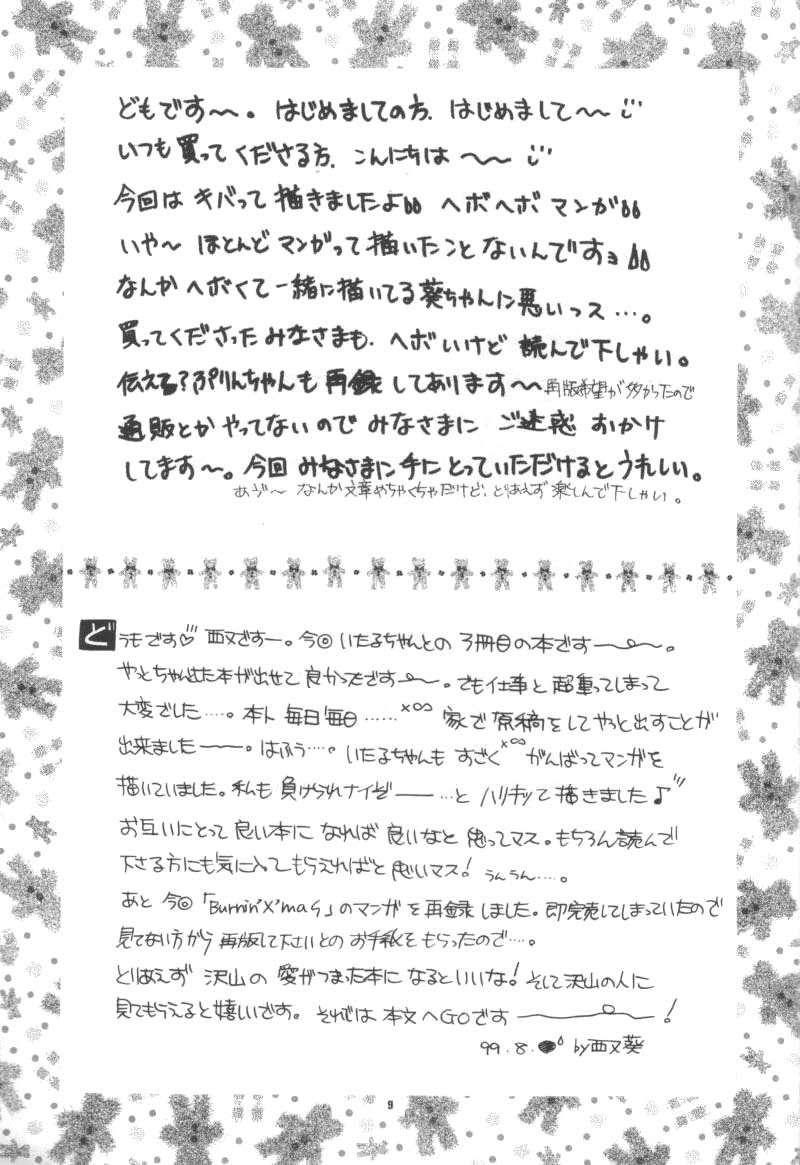 どもです〜。はじめましての方、はじめまして〜〜
いつも買ってくださる方、こんにちは〜〜
今回はキバって描きましたよ ヘボヘボマンガ
いや〜ほとんどマンガって描いたことないんですョ
なんかヘボくて一緒に描いてる葵ちゃんに悪いっス…。
買ってくださったみなさまも、ヘボいけど読んで下しゃい。
伝える?ぷりんちゃんも再録してあります〜再版希望が多かったので
通販とかやってないのでみなさまにご迷惑おかけ
してます〜。今回みなさまに手にとっていただけるとうれしい。
あう゛〜なんか文章めちゃくちゃだけど、とりあえず楽しんで下しゃい。
どうもです♡ 西又ですー。今回いたるちゃんとの3冊目の本です――。
やっとちゃんとした本が出せて良かったです――。でも仕事と超重ってしまって
大変でした…。本ト毎日毎日……×∞ 家で原稿をしてやっと出すことが
出来ました――。はふう…。いたるちゃんもすごく×∞がんばってマンガを
描いていました。私も負けられナイぞ――…とハリキッて描きました♪
お互いにとって良い本になれば良いなと思ってマス。もちろん読んで
下さる方にも気に入ってもらえればと思いマス! うんうん…。
あと今回「Burnin'X'mas」のマンガを再録しました。即完売してしまっていたので
見てない方から再版して下さいとのお手紙をもらったので…。
とりあえず沢山の愛がつまった本になるといいな!そして沢山の人に
見てもらえると嬉しいです。それでは本文へGOです――!
99.8. by西又葵
9